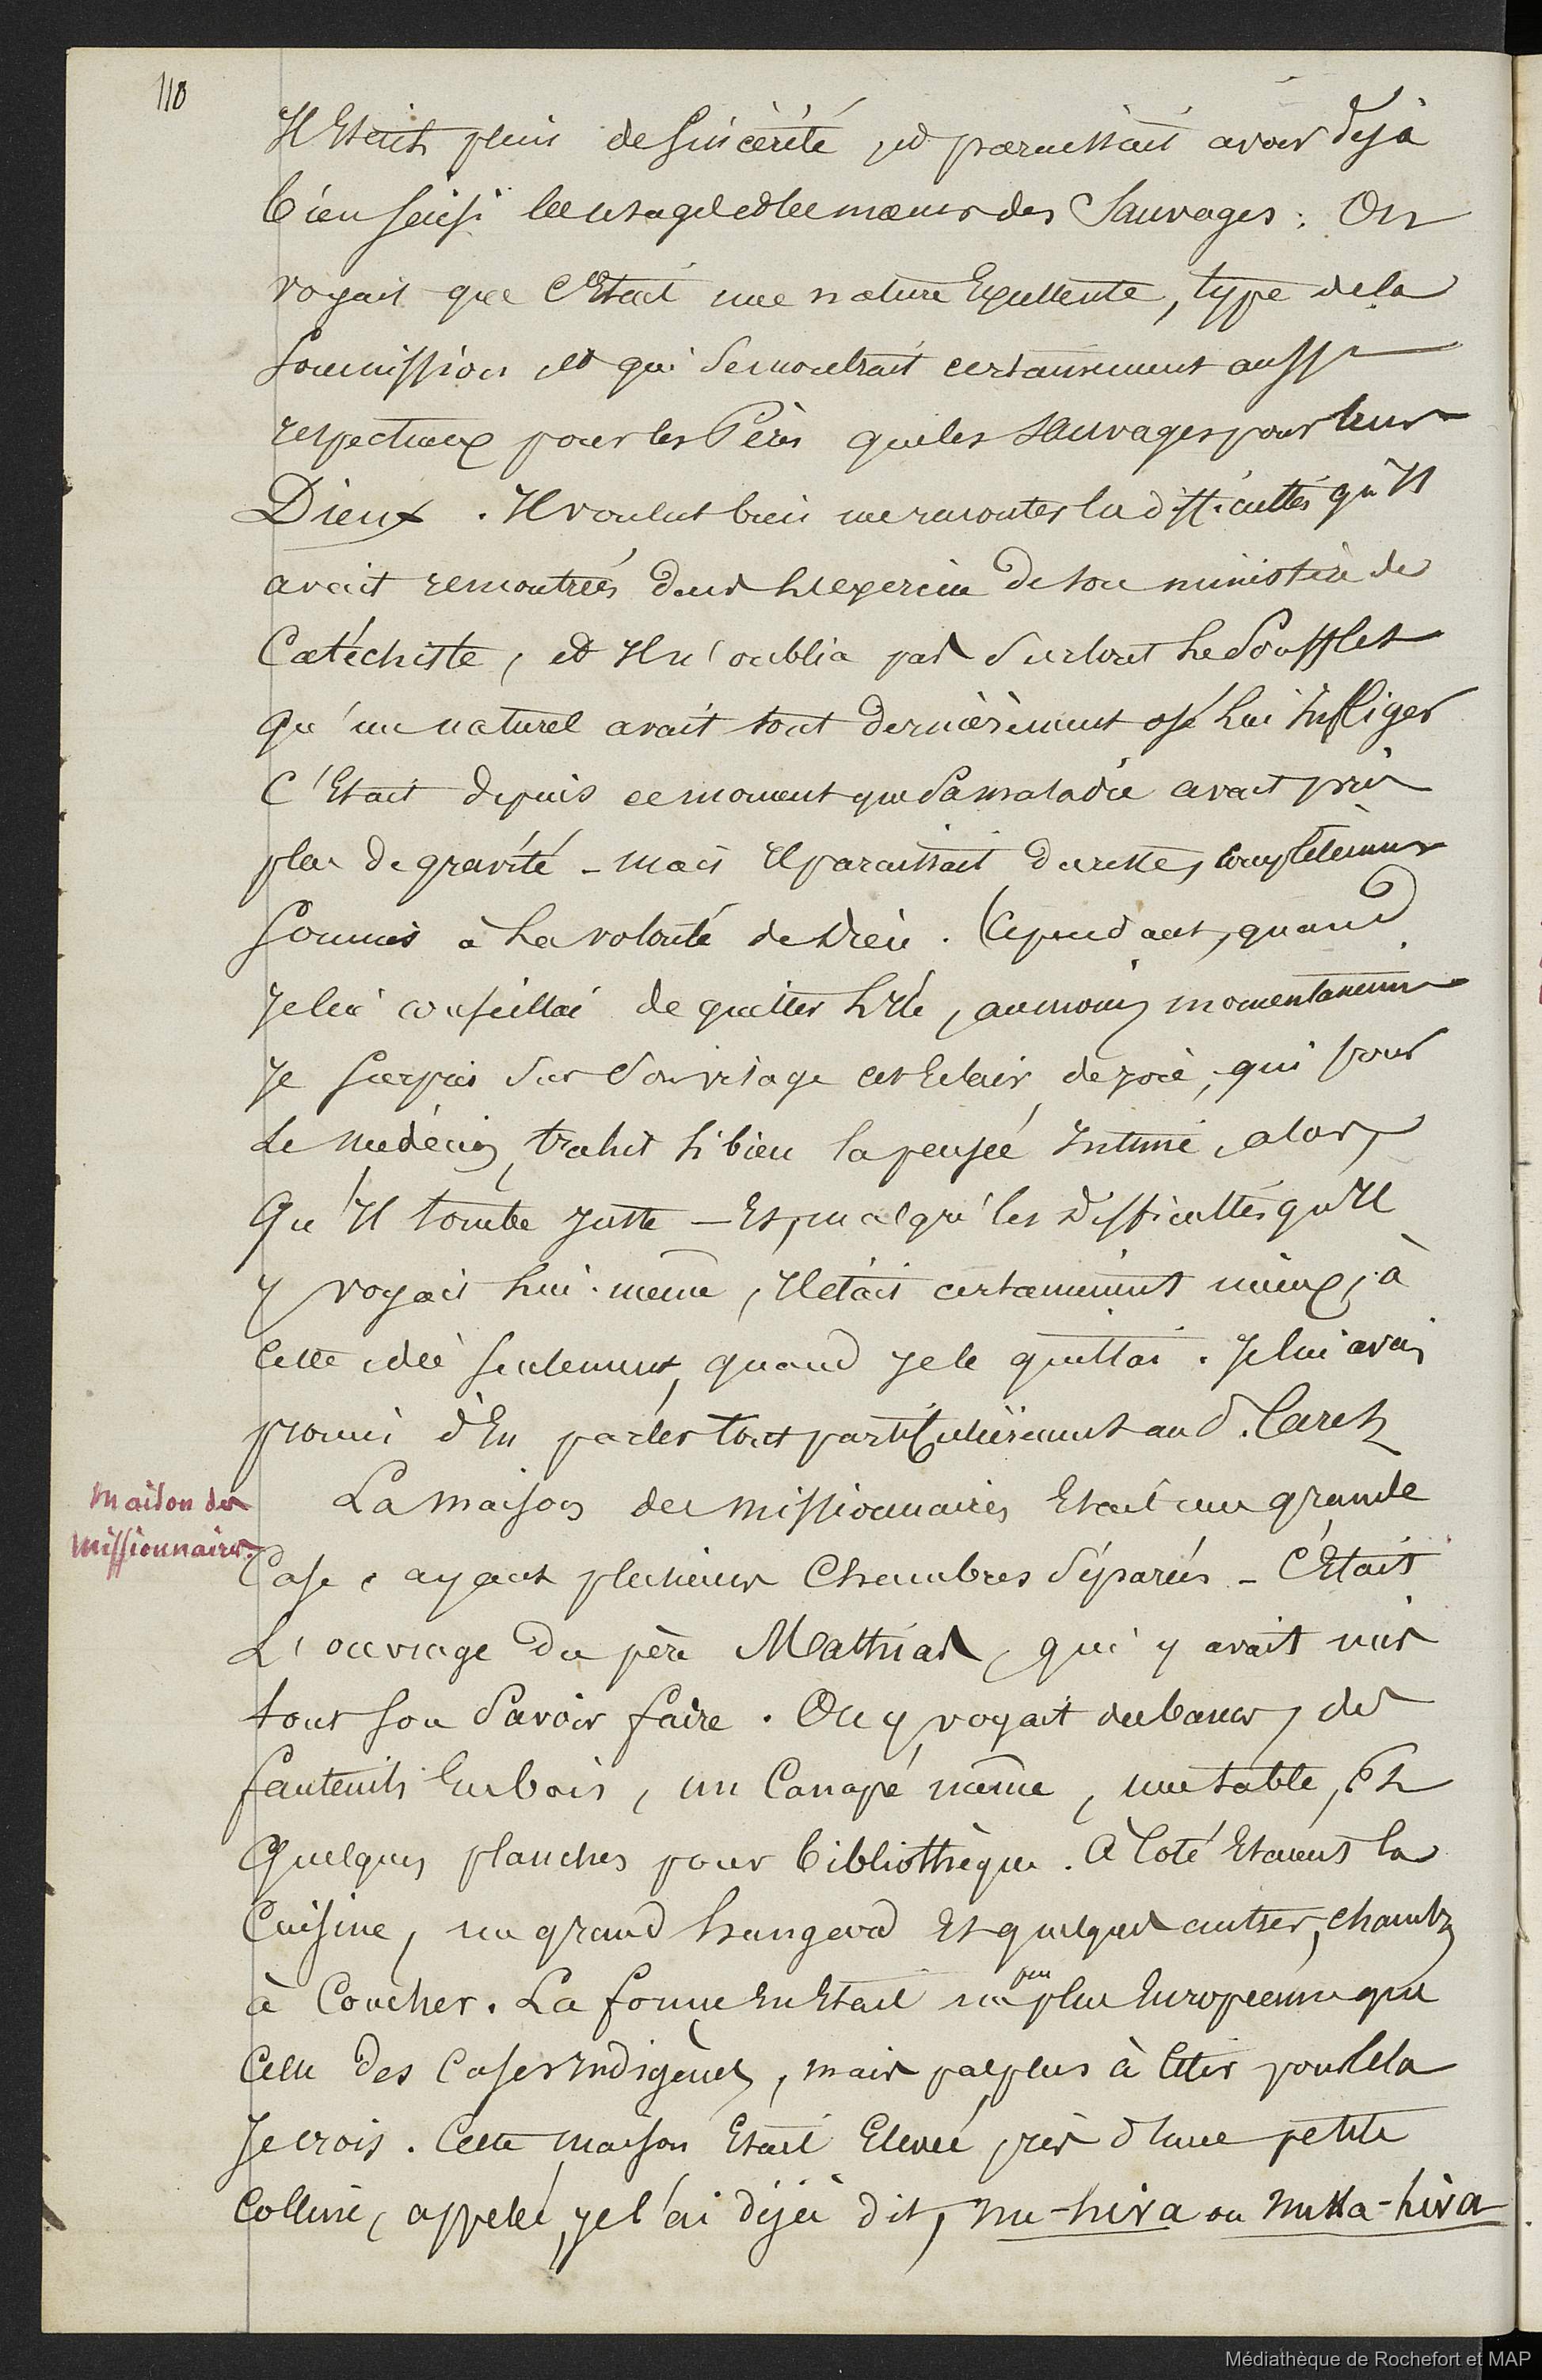 110
Il Etait plein de Sincèrité, et paraissait avoir dèjà
bien Saisi les usages et les mœurs des Sauvages : On
voyait que c'Etait une nature Excellente, type de la
Soumission et qui Se montrait certainement aussi
respectueux pour les Pères que les Sauvages pour leurs
Dieux. Il voulut bien me raconter les difficultés qu'Il
avait rencontrées dans L'exercice de son ministère de
Catéchiste, et Il n'oublia pas Surtout Le Soufflet
qu'un naturel avait tout dernièrement osé Lui Infliger
C'Etait depuis ce moment que Sa maladie avait pris
plus de gravité - mais Il paraissait du reste, complètement
Soumis à La volonté de Dieu. Cependant, quand
Je lui conseillai de quitter L'Ile, au moins momentanément
Je Surpris Sur Son visage cet Eclair de joie, qui pour
Le medécin, trahit Si bien la pensée Intime, alors
Qu'Il tombe Juste — Et, malgré les difficultés qu'Il
y voyait Lui-même, Il était certainement mieux, à
Cette idée Seulement, quand Je le quittai. Je lui avais
promis d'En parler tout particulièrement au d. Caret
Maison des
Missionnaires.
La Maison des Missionnaires Etait une grande
Case, ayant plusieurs Chambres Séparées - C'Etait
L'ouvrage du père Mathias, qui y avait mis
tout Son Savoir faire. On y voyait des bancs, des
fauteuils En bois, un Canapé même, une table, Et
Quelques planches pour bibliothèque. A Coté Etaient la
Cuisine, un grand hangard Et quelques autres chambres
à Coucher. La forme En Etait un peu plus Européenne que
Celle des Cases Indigènes, mais pas plus à Citer pour Cela
Je crois. Cette Maison Etait Elevée près d'une petite
Colline, appelée, je l'ai déjà dit, nu-hiva ou nuka-hiva
Médiathèque de Rochefort et MAP